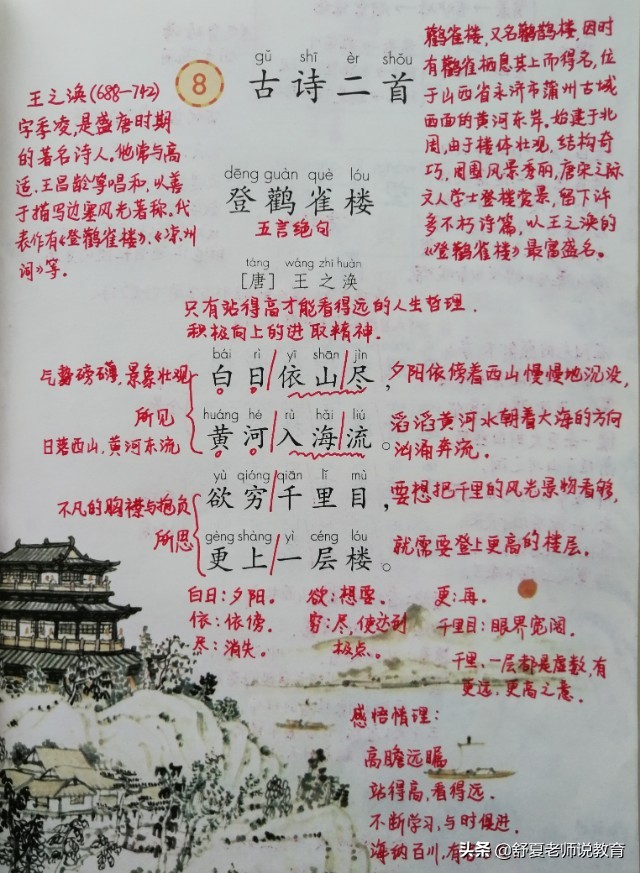 8
gǔ shī èr shǒu
古诗二首
王之涣(688-742)
字季凌,是盛唐时期
的著名诗人。他常与高
适、王昌龄等唱和,以善
于描写边塞风光著称。代
表作有《登鹳雀楼》、《凉州
词》等。
鹳雀楼,又名鹳鹊楼,因时
有鹳雀栖息其上而得名,位
于山西省永济市蒲州古城
西面的黄河东岸。始建于北
周,由于楼体壮观,结构奇
巧,周围风景秀丽,唐宋之际
文人学士登楼赏景,留下许
多不朽诗篇,以王之涣的
《登鹳雀楼》最富盛名。
dēng guàn què lóu
登鹳雀楼
五言绝句
táng wáng zhī huàn
[唐] 王之涣
只有站得高才能看得远的人生哲理.
积极向上的进取精神.
气势磅礴,景象壮观
所见
日落西山,黄河东流
bái rì yī shān jìn
白日依山尽,
夕阳依傍着西山慢慢地沉没,
huáng hé rù hǎi liú
黄河入海流。
滔滔黄河水朝着大海的方向
汹涌奔流.
不凡的胸襟与抱负
所思
yù qióng qiān lǐ mù
欲穷千里目,
要想把千里的风光景物看够,
gèng shàng yì céng lóu
更上一层楼。
就需要登上更高的楼层.
白日:夕阳.
依:依傍.
尽:消失。
欲:想要.
穷:尽,使达到
极点。
更:再.
千里目:眼界宽阔.
千里、一层都是虚数,有
更远、更高之意.
感悟情理:
高瞻远瞩
站得高,看得远.
不断学习,与时俱进.
海纳百川,有
头条 @舒夏老师说教育